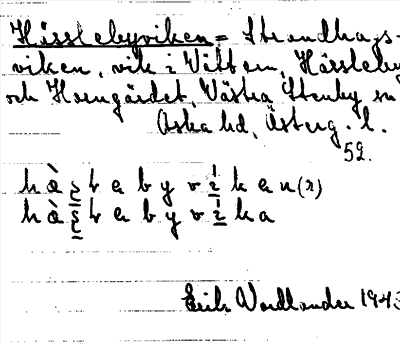 Hässlebyviken = Strandhags-
viken, vik i Vättern, Hässleby
och Horngärdet, Västra Stenby sn
Aska hd, Österg. l.
52.
k a b y v k a n (r)
k a b y v k a
Erik Nordlander 1943